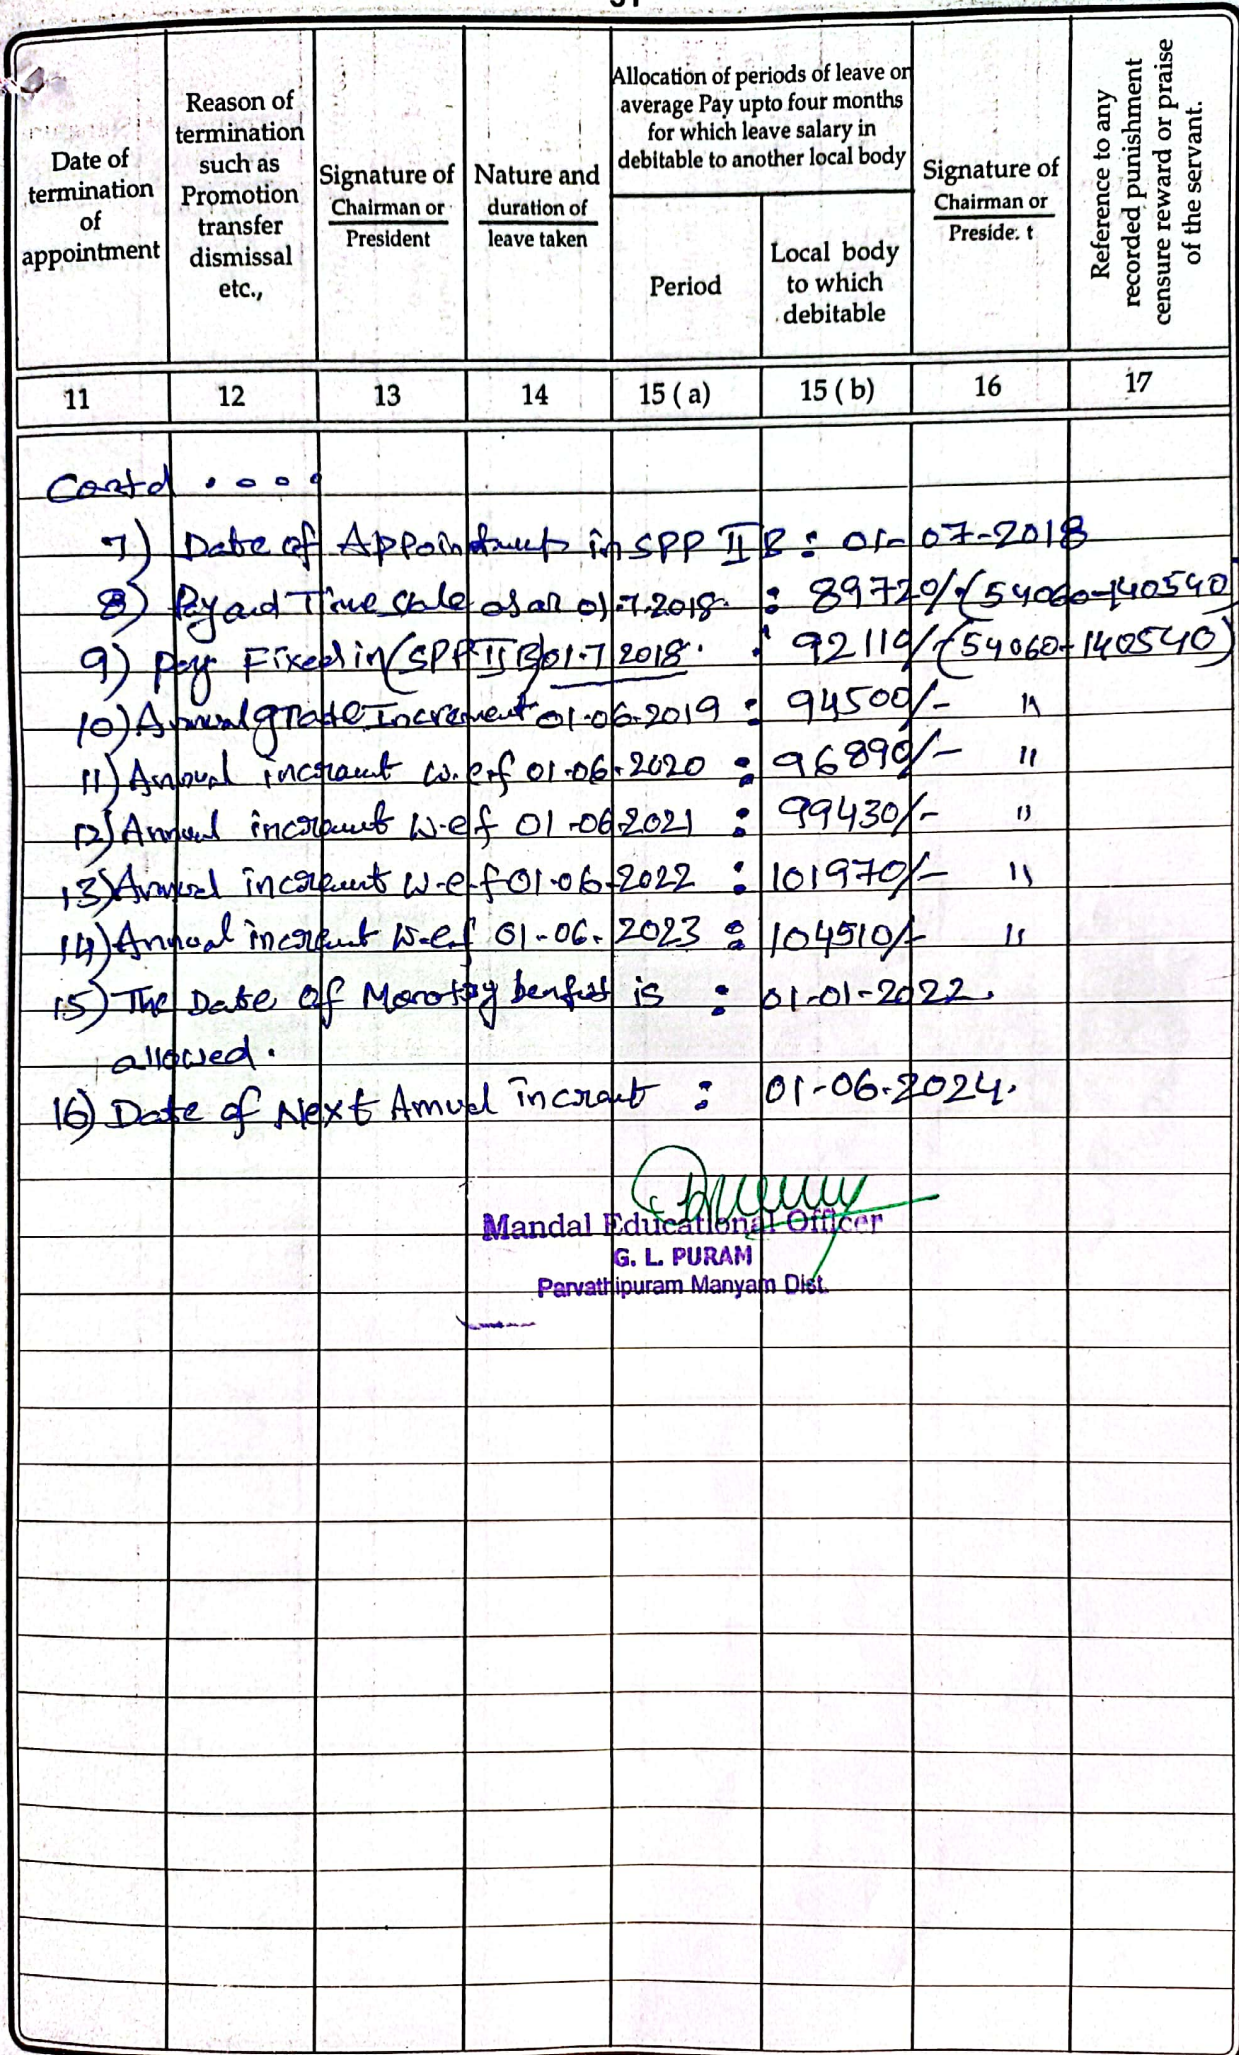 Date of termination of appointment
Reason of termination such as Promotion transfer dismissal etc.,
Signature of Chairman or President
Nature and duration of leave taken
Allocation of periods of leave or average Pay upto four months for which leave salary in debitable to another local body
Period
Local body to which debitable
Signature of Chairman or Preside. t
Reference to any recorded punishment censure reward or praise of the servant.
11 12 13 14 15 ( a) 15 ( b) 16 17
Contd ....
7) Date of Appointment in SPP II B : 01-07-2018
8) Pay and Time scale as on 01.7.2018 : 89720/- (54060-140540)
9) Pay Fixed in (SPP II B) 01.7.2018. : 92110/- (54060-140540)
10) Annual grade Increment 01-06-2019 : 94500/- "
11) Annual incrament w.e.f 01-06-2020 : 96890/- "
12) Annual increment w.e.f 01-06-2021 : 99430/- "
13) Annual increment w.e.f 01-06-2022 : 101970/- "
14) Annual increment w.e.f 01-06-2023 : 104510/- "
15) The Date of benfit is : 01-01-2022.
allowed.
16) Date of Next Annual incrmt : 01-06-2024.
Mandal Educational Officer
G. L. PURAM
Parvathipuram Manyam Dist.